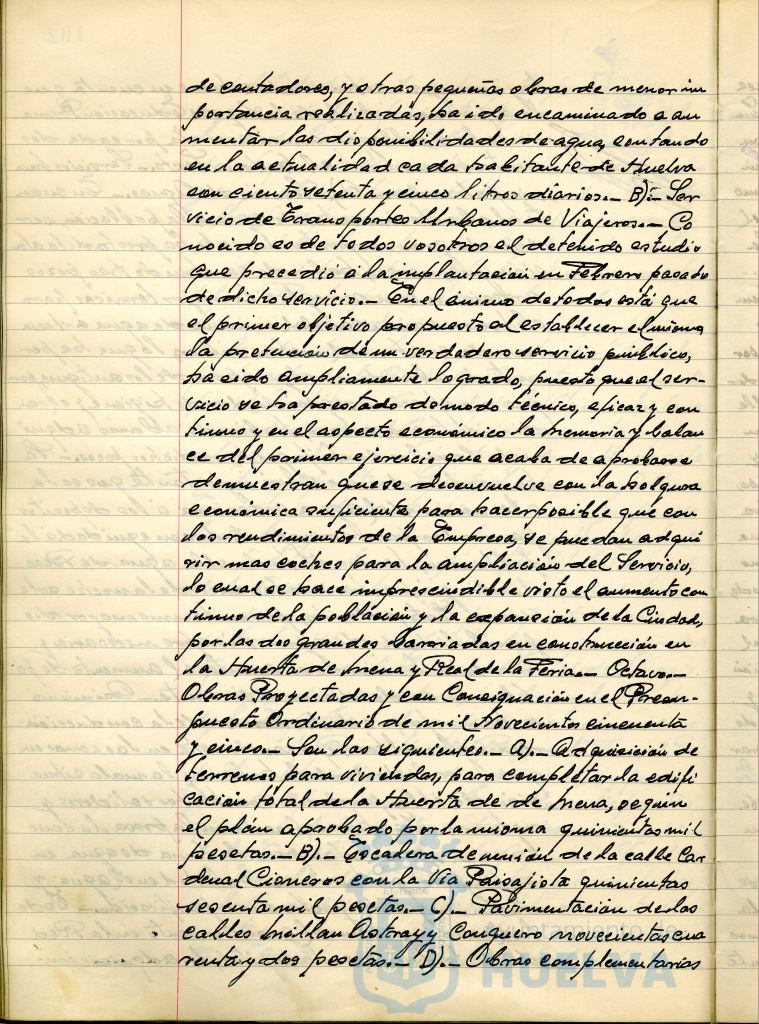 de contadores, y otras pequeñas obras de menor im
portancia realizadas, ha ido encaminado a au
mentar las disponibilidades de agua, contando
en la actualidad cada habitante de Huelva
con ciento setenta y cinco litros diarios.- B).- Ser
vicio de Transportes Urbanos de Viajeros.- Co
nocido es de todos vosotros el detenido estudio
que precedió a la implantación en Febrero pasado
de dicho servicio.- En el ánimo de todos está que
el primer objetivo propuesto al establecer el mismo
la prestación de un verdadero servicio público,
ha sido ampliamente logrado, puesto que el ser-
vicio se ha prestado de modo técnico, eficaz y con
tinuo y en el aspecto económico la Memoria y balan
ce del primer ejercicio que acaba de aprobarse
demuestran que se desenvuelve con la holgura
económica suficiente para hacer posible que con
los rendimientos de la Empresa, se puedan adqui
rir mas coches para la ampliación del Servicio,
lo cual se hace imprescindible visto el aumento con
tinuo de la población y la expansión de la Ciudad,
por las dos grandes barriadas en construcción en
la Huerta de Mena y Real de la Feria.- Octavo.-
Obras Proyectadas y con Consignación en el Presu-
puesto Ordinario de mil Novecientos cincuenta
y cinco.- Son las siguientes.- A).- Adquisición de
terrenos para viviendas, para completar la edifi
cación total de la Huerta de de Mena, según
el plán aprobado por la misma quinientas mil
pesetas.- B).- Escalera de unión de la calle Car
denal Cisneros con la Vía Paisajista quinientas
sesenta mil pesetas.- C).- Pavimentación de las
calles Millan Astray y Conquero novecientas cua
renta y dos pesetas.- D).- Obras complementarias
HUELVA